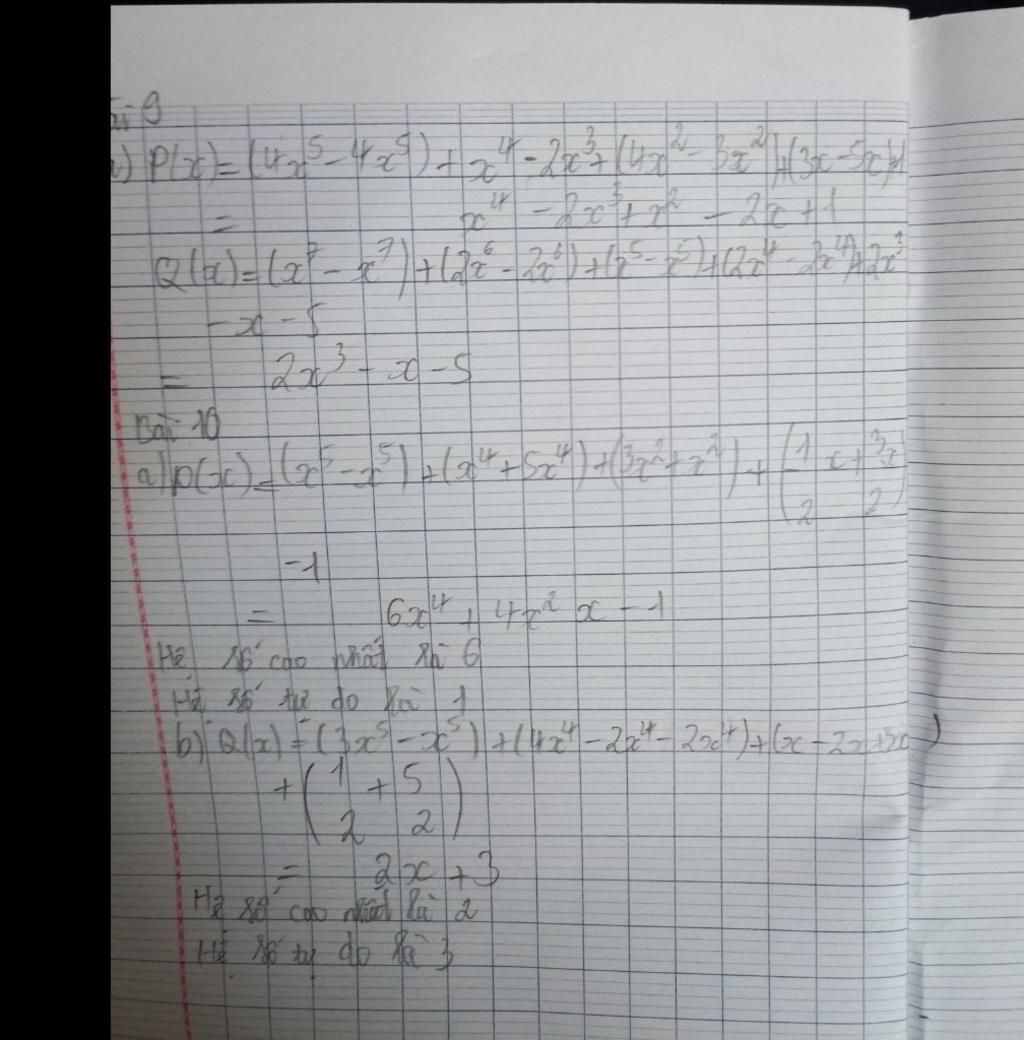 9
) P(x) = (4x⁵ - 4x⁵) + x⁴ - 2x³ + (4x² - 3x²) + (3x - 5x) + 1
= x⁴ - 2x³ + x² - 2x + 1
Q(x) = (x⁷ - x⁷) + (2x⁶ - 2x⁶) + (x⁵ - x⁵) + (2x⁴ - 2x⁴) + 2x³
- x - 5
= 2x³ - x - 5
Bài 10
a) P(x) = (x⁵ - x⁵) + (x⁴ + 5x⁴) + (3x² + x²) + (1/2 x + 3/2 x)
-1
= 6x⁴ + 4x² x - 1
Hệ số cao nhất là 6
Hệ số tự do là 1
b) Q(x) = (3x⁵ - x⁵) + (4x⁴ - 2x⁴ - 2x⁴) + (x - 2x + 3x)
+ (1/2 + 5/2)
= 2x + 3
Hệ số cao nhất là 2
Hệ số tự do là 3